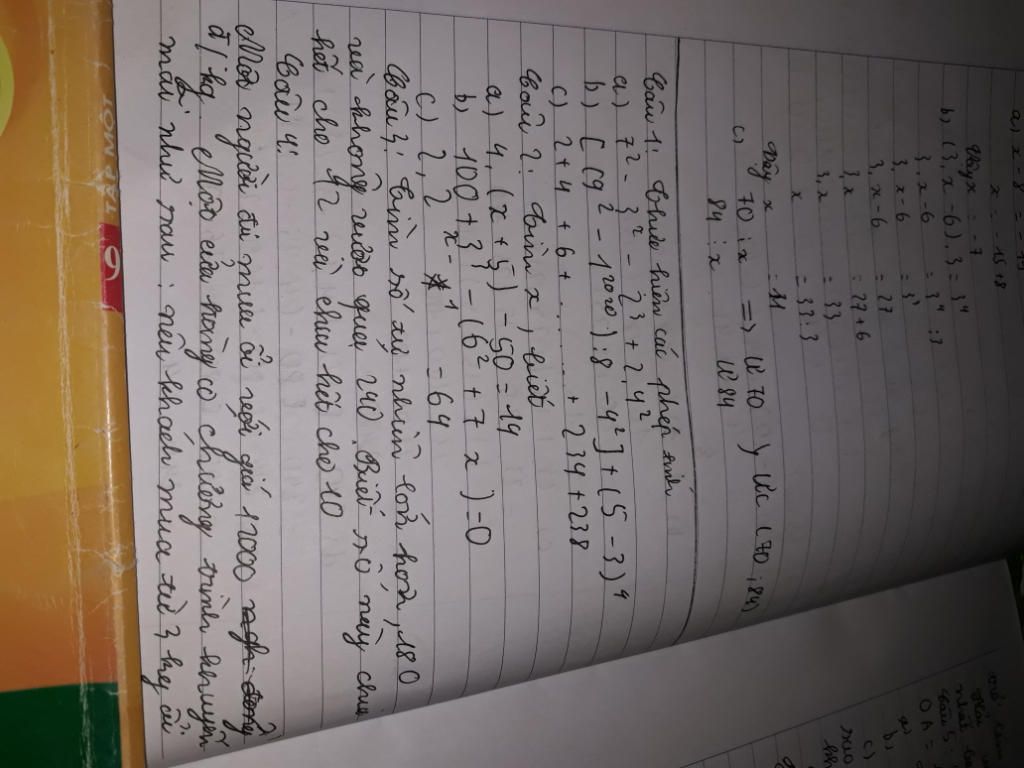 a) x - 8 = - 15
x = - 15 + 8
Vậy x = - 7
b) (3. x - 6) . 3 = 3⁴
3. x - 6 = 3⁴ : 3
3. x - 6 = 3³
3. x - 6 = 27
3. x = 27 + 6
3. x = 33
x = 33 : 3
Vậy x = 11
c) 70 : x => Ư 70 } ƯC (70 ; 84)
84 : x Ư 84
Câu 1: Thực hiện các phép tính
a) 7² - 3² - 2³ + 2. 4²
b) [(9² - 1²⁰²⁰) : 8 - 4²] + (5 - 3)⁴
c) 2 + 4 + 6 + ........... + 234 + 238
Câu 2: Tìm x, biết
a) 4. (x + 5) - 50 = 14
b) 100 + 3³ - (6² + 7 x) = 0
c) 2. 2ˣ⁻¹ = 64
Câu 3: Tìm số tự nhiên lớn hơn, 180
và không vượt quá 240. Biết số này chia
hết cho 42 và chia hết cho 10
Câu 4:
Một người đi mua ổi với giá 1000
đ/kg. Một cửa hàng có chương trình khuyến
mãi như sau: nếu khách mua từ 3 kg ổi
TẬP MỘT